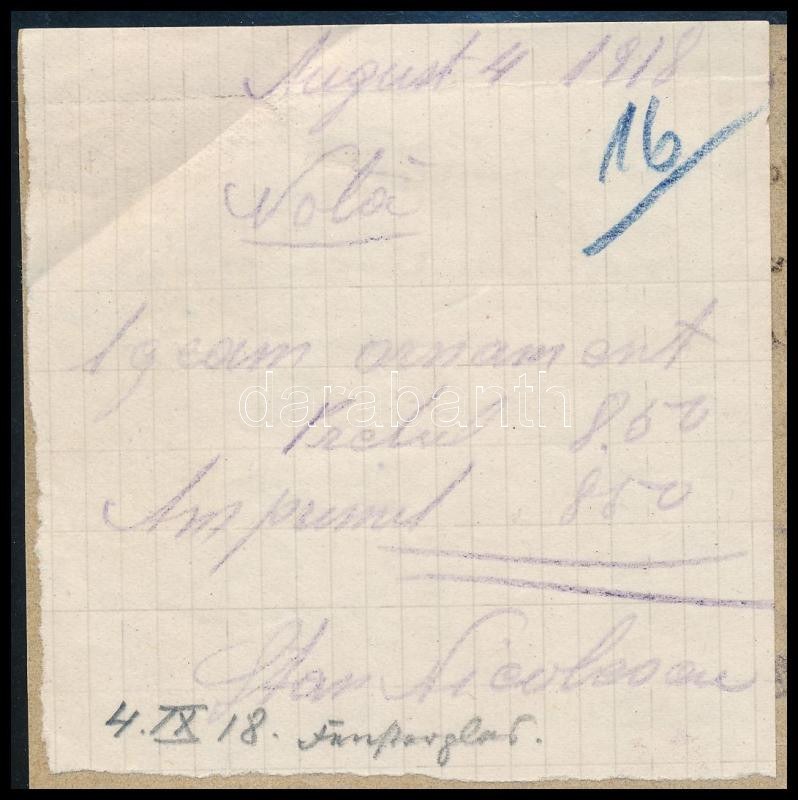 August 4 1918
16
Notă
1 geam ornament
Prețul 8.50
Am primit 850
Stan Nicolescu
4. IX 18. Fensterglas.
darabanth